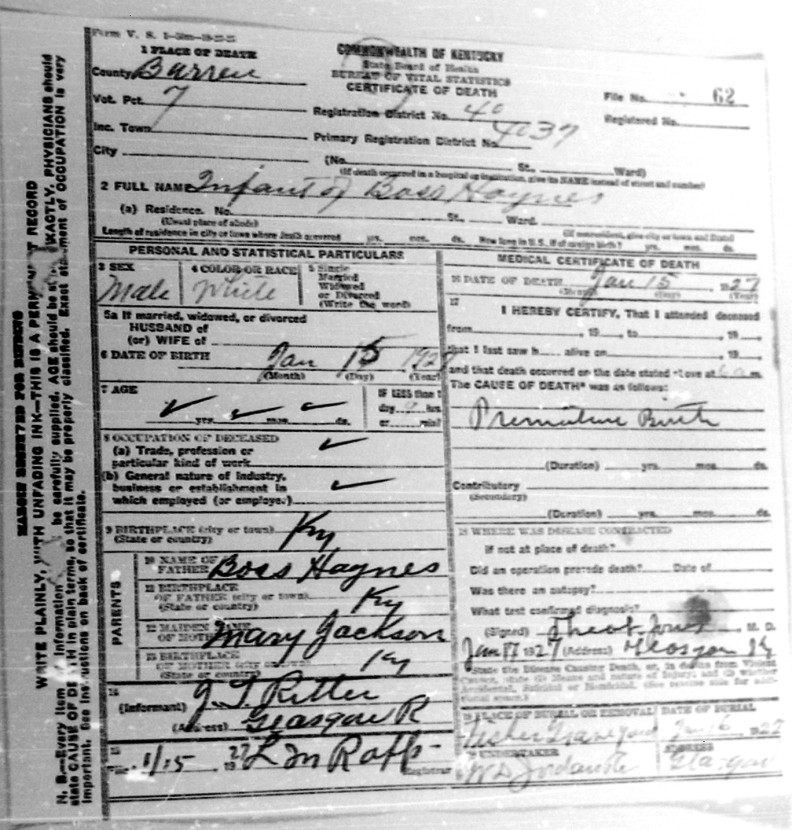 Form V. S. 1
1 PLACE OF DEATH
County Barren
Vot. Pct. 7
Inc. Town
City
COMMONWEALTH OF KENTUCKY
State Board of Health
BUREAU OF VITAL STATISTICS
CERTIFICATE OF DEATH
Registration District No. 40
Primary Registration District No. 4037
File No. 62
Registered No.
(No. St., Ward)
(If death occurred in a hospital or institution, give its NAME instead of street and number)
2 FULL NAME Infant of Boss Haynes
(a) Residence. No. St., Ward.
(Usual place of abode) (If nonresident, give city or town and State)
Length of residence in city or town where death occurred yrs. mos. ds. How long in U. S., if of foreign birth? yrs. mos. ds.
PERSONAL AND STATISTICAL PARTICULARS
3 SEX
Male
4 COLOR OR RACE
White
5 Single
Married
Widowed
or Divorced
(Write the word)
5a If married, widowed, or divorced
HUSBAND of
(or) WIFE of
6 DATE OF BIRTH Jan 15 1927
(Month) (Day) (Year)
7 AGE
yrs. mos. ds.
IF LESS than 1
day hrs.
or min?
8 OCCUPATION OF DECEASED
(a) Trade, profession or
particular kind of work
(b) General nature of industry,
business or establishment in
which employed (or employer)
9 BIRTHPLACE (city or town)
(State or country) Ky
PARENTS
10 NAME OF
FATHER Boss Haynes
11 BIRTHPLACE
OF FATHER (city or town)
(State or country) Ky
12 MAIDEN NAME
OF MOTHER Mary Jackson
13 BIRTHPLACE
OF MOTHER (city or town)
(State or country) Ky
14
(Informant) J. T. Ritter
(Address) Glasgow R
15
1/15 1927 L M
Registrar
MEDICAL CERTIFICATE OF DEATH
16 DATE OF DEATH Jan 15 1927
(Month) (Day) (Year)
17
I HEREBY CERTIFY, That I attended deceased
from , 19 , to , 19 ,
that I last saw h alive on , 19 ,
and that death occurred on the date stated above at 6 a m.
The CAUSE OF DEATH* was as follows:
Premature Birth
(Duration) yrs. mos. ds.
Contributory
(Secondary)
(Duration) yrs. mos. ds.
18 WHERE WAS DISEASE CONTRACTED
If not at place of death?
Did an operation precede death? Date of
Was there an autopsy?
What test confirmed diagnosis?
(Signed) M. D.
Jan 17 1927 (Address) Glasgow Ky
*State the Disease Causing Death, or, in deaths from Violent
Causes, state (1) Means and nature of Injury; and (2) whether
Accidental, Suicidal or Homicidal.
19 PLACE OF BURIAL OR REMOVAL
Graveyard
DATE OF BURIAL
Jan 16 1927
20 UNDERTAKER
ADDRESS
Glasgow
MARGIN RESERVED FOR BINDING
WRITE PLAINLY, WITH UNFADING INK—THIS IS A PERMANENT RECORD
N. B.—Every item of information be carefully supplied. AGE should be stated EXACTLY. PHYSICIANS should
state CAUSE OF DEATH in plain terms, so that it may be properly classified. Exact statement of OCCUPATION is very
important. See instructions on back of certificate.